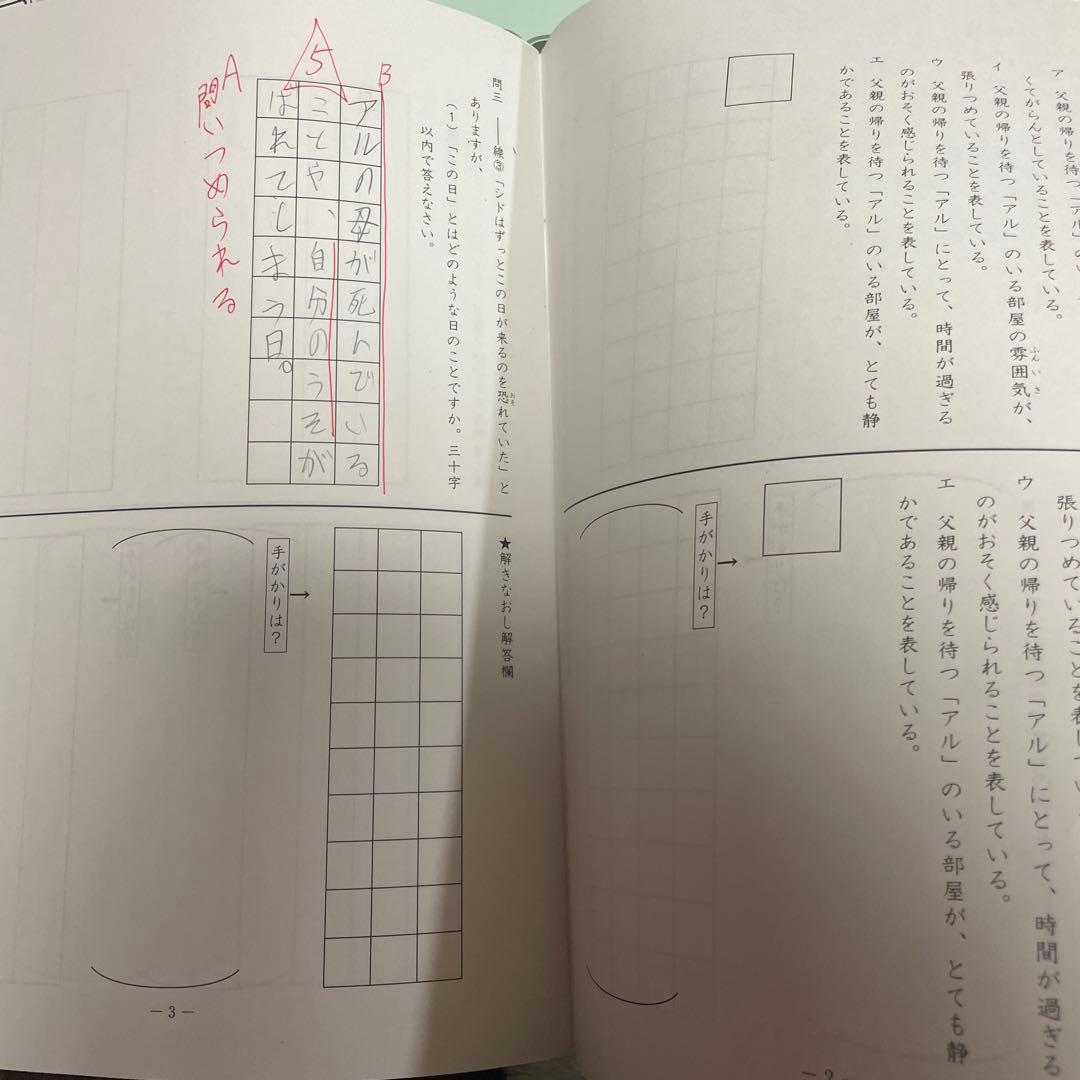 ア 父親の帰りを待つ「アル」の
くてがらんとしていることを表している。
イ 父親の帰りを待つ「アル」のいる部屋の雰囲気が、
ふんいき
張りつめていることを表している。
ウ 父親の帰りを待つ「アル」にとって、時間が過ぎる
のがおそく感じられることを表している。
エ 父親の帰りを待つ「アル」のいる部屋が、とても静
かであることを表している。
張りつめていることを表して
ウ 父親の帰りを待つ「アル」にとって、時間が過ぎる
のがおそく感じられることを表している。
エ 父親の帰りを待つ「アル」のいる部屋が、とても静
かであることを表している。
手がかりは?
→
－2
問三 ――線③「シドはずっとこの日が来るのを恐れていた」と
おそ
ありますが、
(1)「この日」とはどのような日のことですか。三十字
以内で答えなさい。
B
アルの母が死んでいる
5
ことや、自分のうそが
ばれてしまう日。
A
問いつめられる
★解きなおし解答欄
手がかりは?
→
－3－